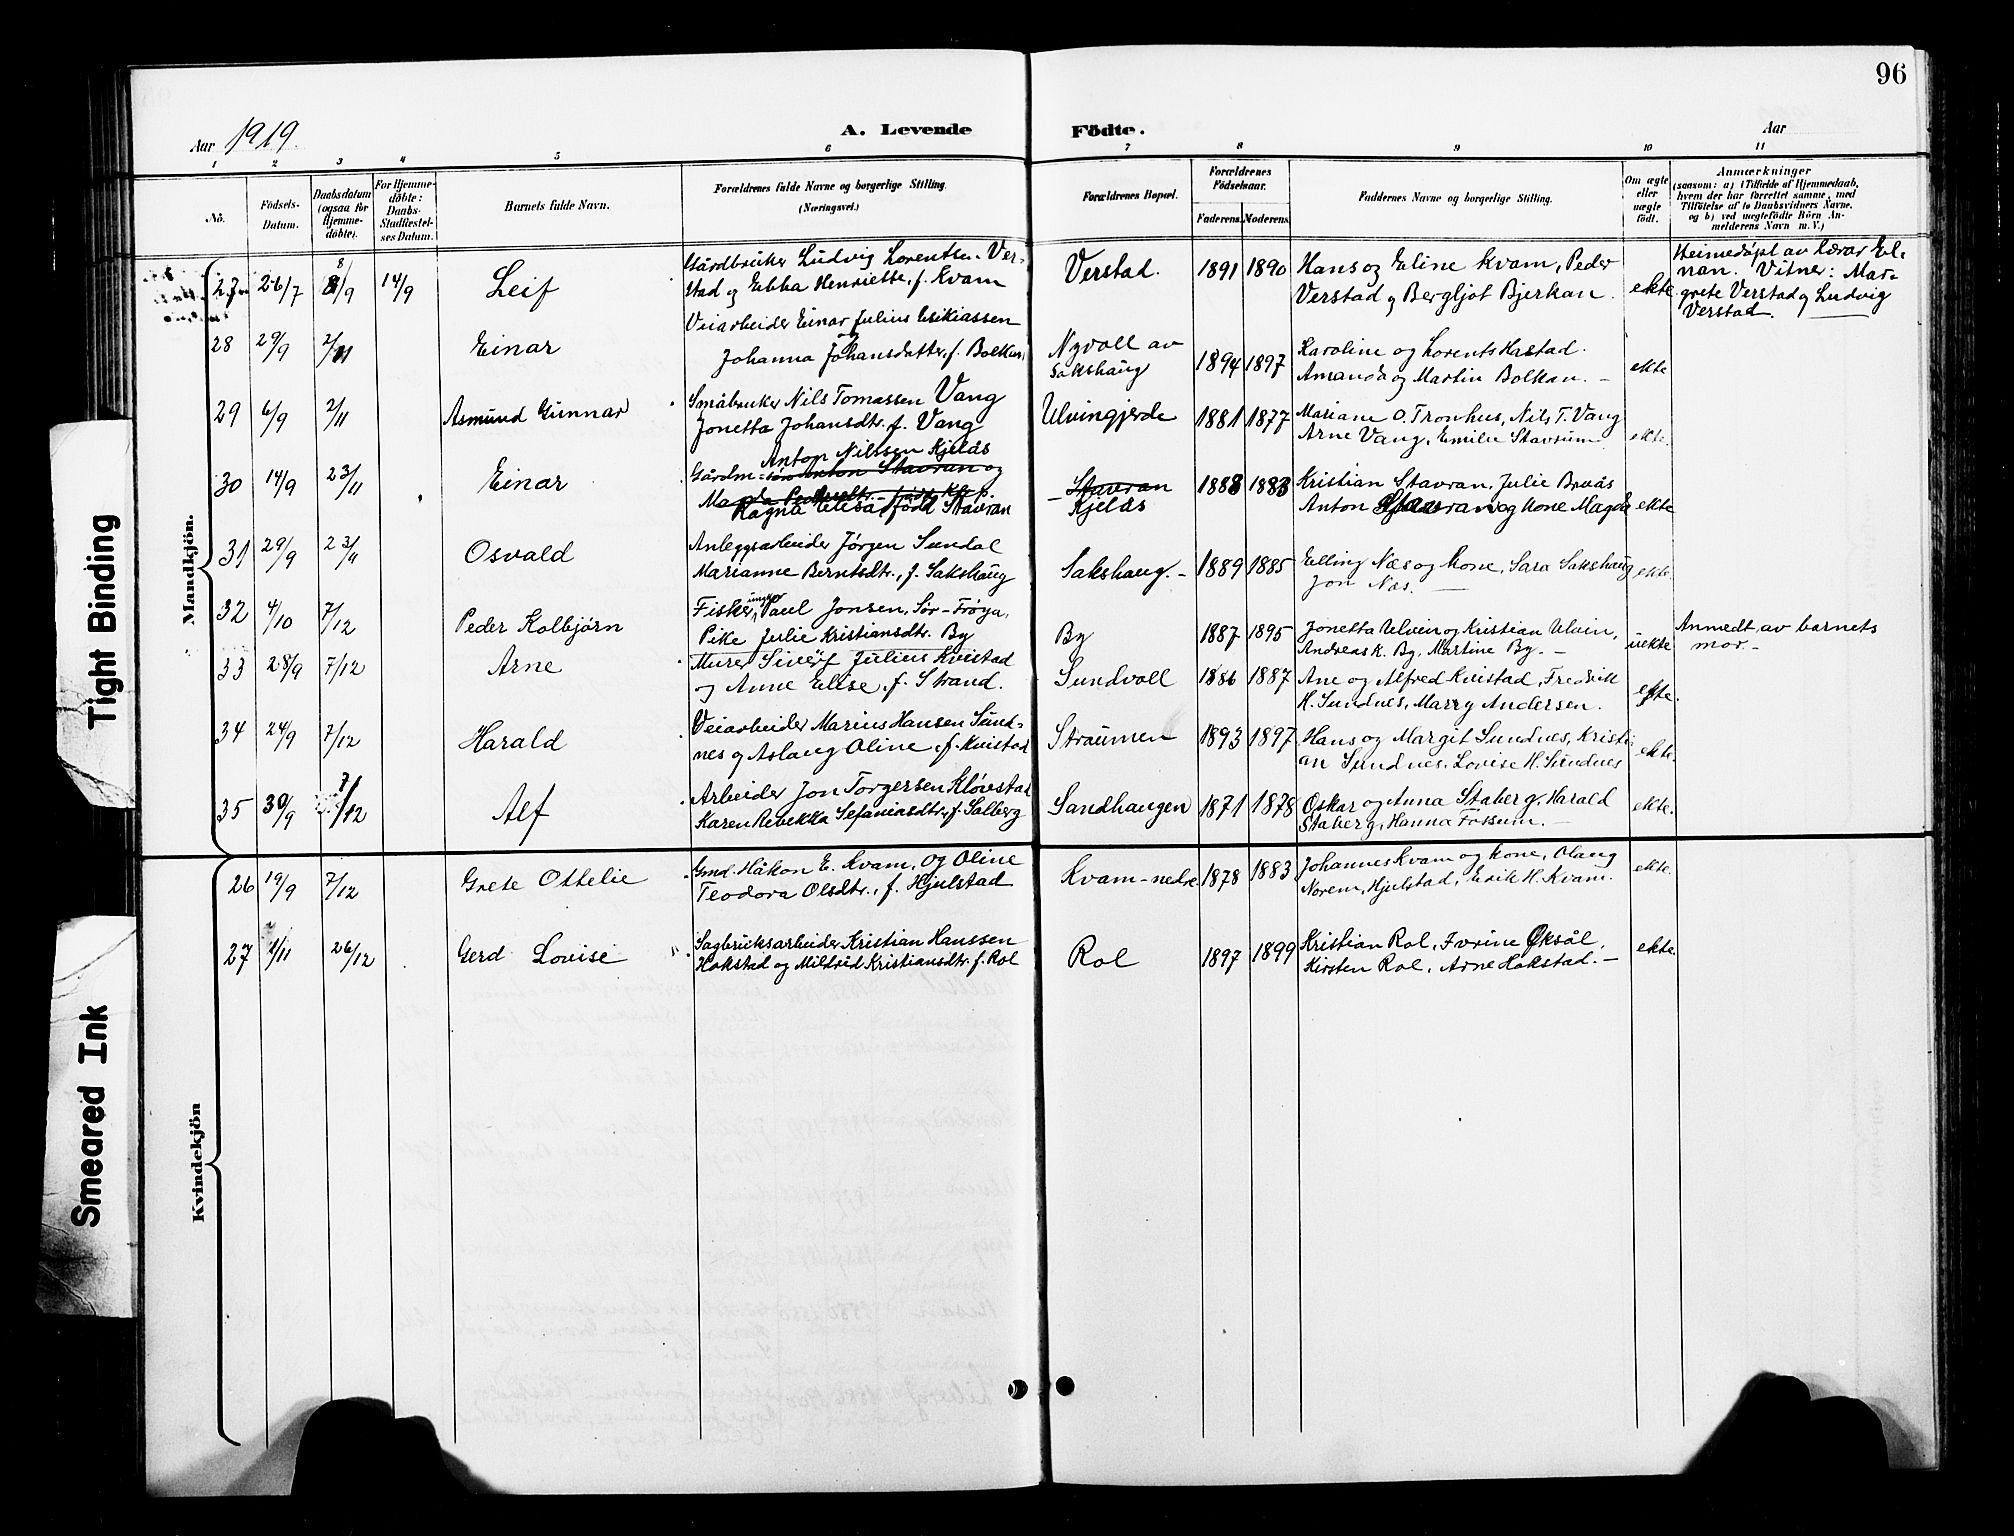 96
Aar 1919.
A. Levende Födte.
Aar
1 2 3 4 5 6 7 8 9 10 11
No.
Födsels-Datum.
Daabsdatum (ogsaa for Hjemme-döbte).
For Hjemme-döbte: Daabs-Stadfæstel-ses Datum.
Barnets fulde Navn.
Forældrenes fulde Navne og borgerlige Stilling.
(Næringsvei.)
Forældrenes Bopæl.
Forældrenes Födselsaar.
Faderens. Moderens.
Faddernes Navne og borgerlige Stilling.
Om ægte eller uægte födt.
Anmærkninger
(saasom: a) i Tilfælde af Hjemmedaab,
hvem der har forrettet samme, med
Tilföielse af to Daabsvidners Navne,
og b) ved uægtefödte Börn An-
melderens Navn m. V.)
Mandkjön.
27 26/7 8/9 14/9 Leif
Gårdbruker Ludvig Lorentsen Ver-
stad og Ebba Henriette, f. Kvam
Verstad. 1891 1890
Hans og Eline Kvam, Peder
Verstad og Bergljot Bjerkan.
ekte
Heimedøpt av lærar El-
nan. Vitner: Mar-
grete Verstad og Ludvig
Verstad.
28 29/9 2/11 Einar
Veiarbeider Einar Julius Esekiassen
og
Johanna Johansdatter, f. Bolkan
Nyvoll av
Sakshaug
1894 1897
Karoline og Lorents Hastad.
Amanda og Martin Bolkan. –
ekte
29 6/9 2/11 Asmund Gunnar
Småbruker Nils Tomassen Vang
Jonetta Johansdtr. f. Vang
Ulvingjerde 1881 1877
Mariane O. Tronhus, Nils T. Vang
Arne Vang, Emilie Stavrum
ekte.
30 14/9 23/11 Einar
Anton Nilssen Kjelås
Gårdm. Anton Stavran og
Magda Pedersdtr.
Ragna Elisa, född Stavran
– Stavran
Kjelås
1888 1888
Kristian Stavran, Julie Bruås
Anton Stavran og kone Magda
ekte
31 29/9 23/11 Osvald
Anleggsarbeider Jörgen Sundal
Marianne Berntsdtr., f. Sakshaug
Sakshaug. – 1889 1885
Elling Næs og kone, Sara Sakshaug
Jon Næs. –
ekte.
32 4/10 7/12 Peder Kolbjörn
Fisker, ungkar Paul Jonsen, Sör-Fröya.
Pike Julie Kristiansdtr. By
By 1887 1895
Jonetta Ulvin og Kristian Ulvin,
Andreas K. By, Martine By. –
uekte
Anmeldt av barnets
mor. –
33 28/9 7/12 Arne
Murer Siverf Julius Kvistad
og Anne Elise, f. Strand.
Sundvoll 1886 1887
Ane og Alfred Kvistad, Fredrik
H. Sundnes, Marry Andersen.
ekte.
34 24/9 7/12 Harald
Veiarbeider Marius Hansen Sund-
nes og Aslaug Oline, f. Kvistad
Straumen 1893 1897
Hans og Margit Sundnes, Kristi-
an Sundnes, Lovise H. Sundnes
ekte.
35 30/9 7/12 Alf
Arbeider Jon Torgersen Klövstad
Karen Rebekka Sefaniasdtr., f. Salberg
Sandhaugen 1871 1878
Oskar og Anna Staberg, Harald
Staberg, Hanna Fossum. –
ekte.
Kvindekjön
26 19/9 7/12 Grete Ottelie
Grd. Håkon E. Kvam, og Oline
Teodora Olsdtr., f. Hjulstad
Kvam-nedre 1878 1883
Johannes Kvam og kone, Olaug
Norem, Hjulstad, Erik H. Kvam.
ekte.
27 1/11 26/12 Gerd Lovise
Sagbruksarbeider Kristian Hanssen
Hokstad og Mildrid Kristiansdtr. f. Rol
Rol 1897 1899
Kristian Rol, Fvrine Öksål,
Kirsten Rol, Arne Hokstad. –
ekte.
Tight Binding
Smeared Ink